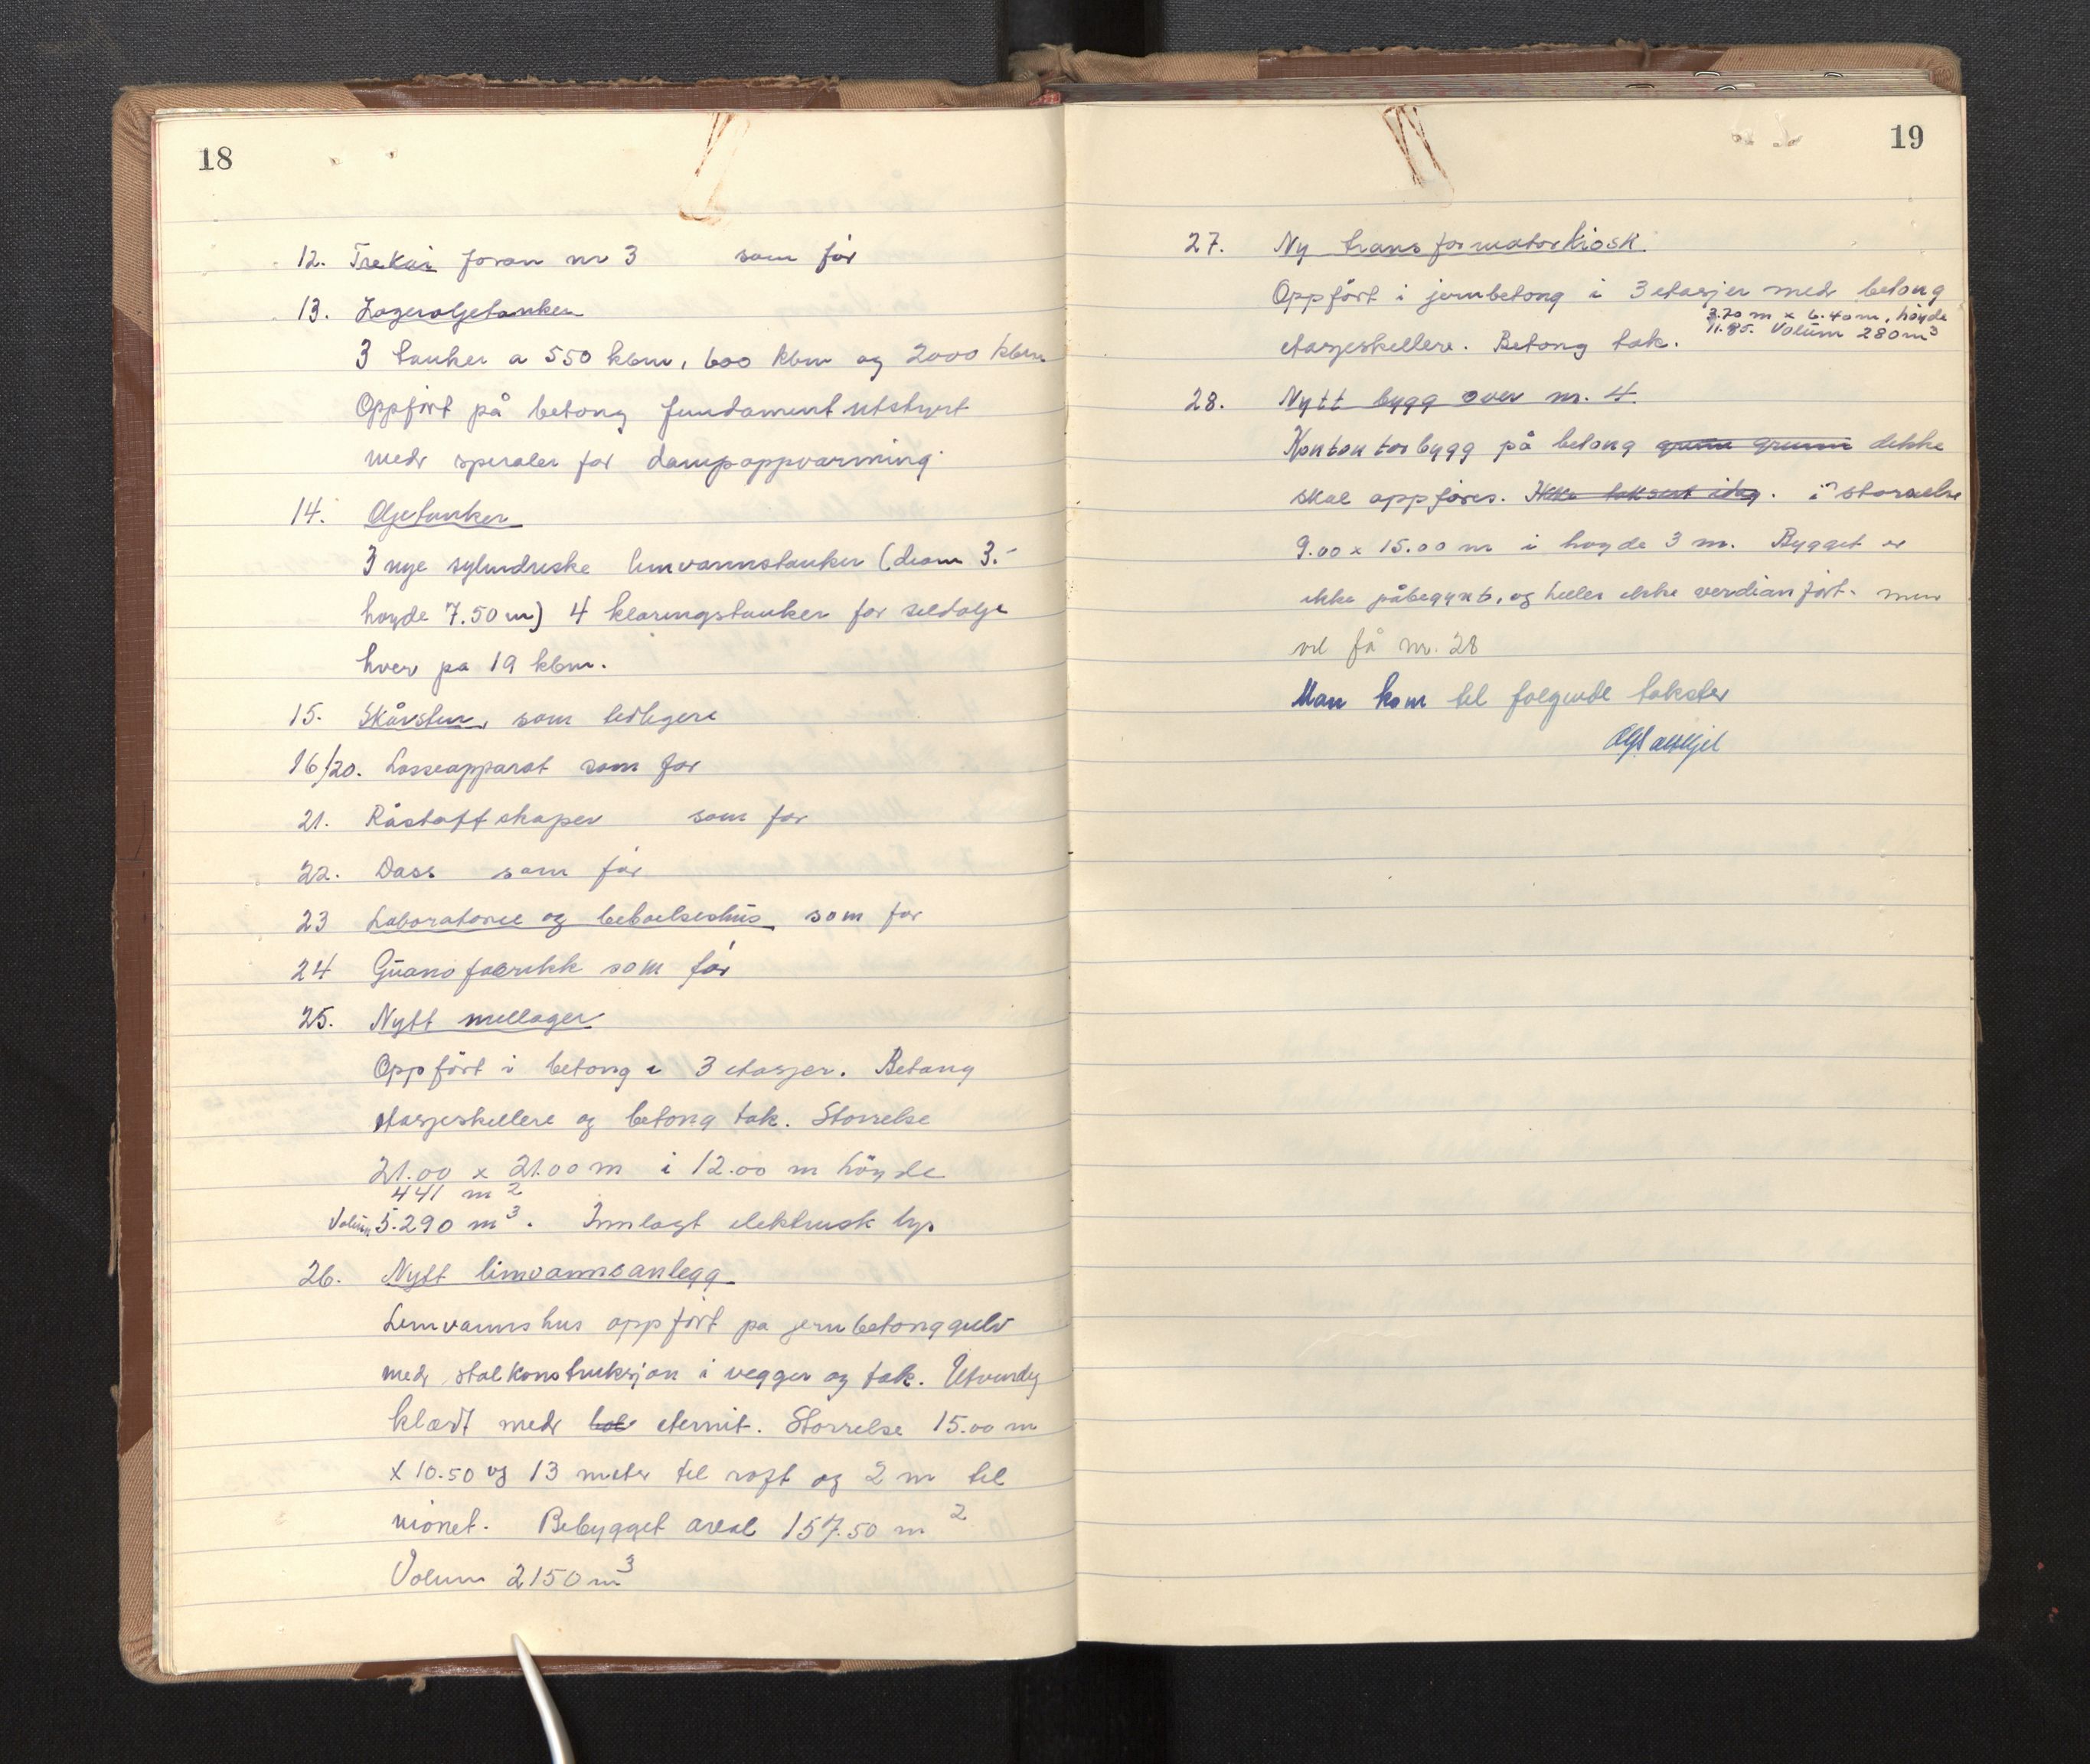 18
12. Trekai foran nr 3 som før
13. Lageroljetanker
3 tanker a 550 kbm, 600 kbm og 2000 kbm
Oppført på betong fundament utstyrt
med speraler for dampoppvarming
14. Oljetanker
3 nye sylindriske limvannstanker (diam 3.-
høyde 7.50 m) 4 klaringstanker for sildolje
hver pa 19 kbm.
15. Skårsten, som tidligere
16/20. Losseapparat som før
21. Råstoffskaper som før
22. Dass som før
23 Laboratorie og beboelseshus som før
24 Guanofabrikk som før
25. Nytt mellager
Oppført i betong i 3 etasjer. Betong
etasjeskillere og betong tak. Storrelse
21.00 x 21.00 m i 12.00 m höyde
441 m2
Volum 5.290 m3. Innlagt elektrisk lys
26. Nytt limvannsanlegg
Limvannshus oppført pa jernbetonggulv
med stalkonstruksjon i vegger og tak. Utvendig
klædt med eternit. Storrelse 15.00 m
x 10.50 og 13 meter til raft og 2 m til
mönet. Bebygget areal 157.50 m2
Volum 2150 m3
19
27. Ny transformatorkiosk
Oppfört i jernbetong i 3 etasjer med betong
3.70 m x 6.40 m, höyde
etasjeskillere. Betong tak. 11.85. Volüm 280 m3
28. Nytt bygg over nr. 4.
Kontontorbygg på betong grunn dekke
skal oppføres. Ikke taksert idag. i störrelse
9.00 x 15.00 m i høyde 3 m. Bygget er
ikke påbegynt, og heller ikke verdianført. men
vil få nr. 28
Man kom til følgende takster